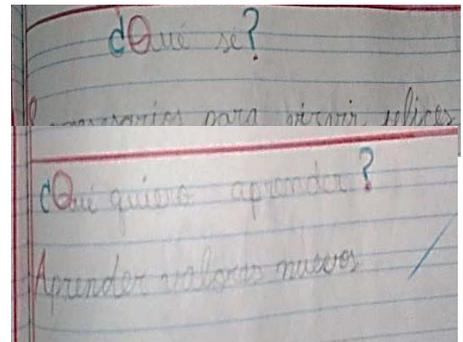 ¿Qué sé?
para vivir felices
¿Qué quiero aprender?
Aprender valores nuevos